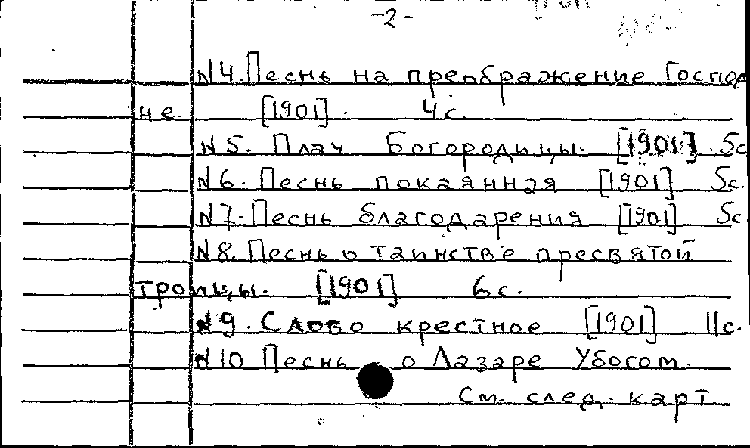 -2-
N4. Песнь на преображение Господ
не [1901]. 4с.
N5. Плач Богородицы. [1901]. 5с
N6. Песнь покаянная [1901] 5с.
N7. Песнь благодарения [1901] 5с
N8. Песнь о таинстве пресвятой
троицы. [1901] 6с.
N9. Слово крестное [1901] 11с.
N10 Песнь о Лазаре Убогом.
См. след. карт